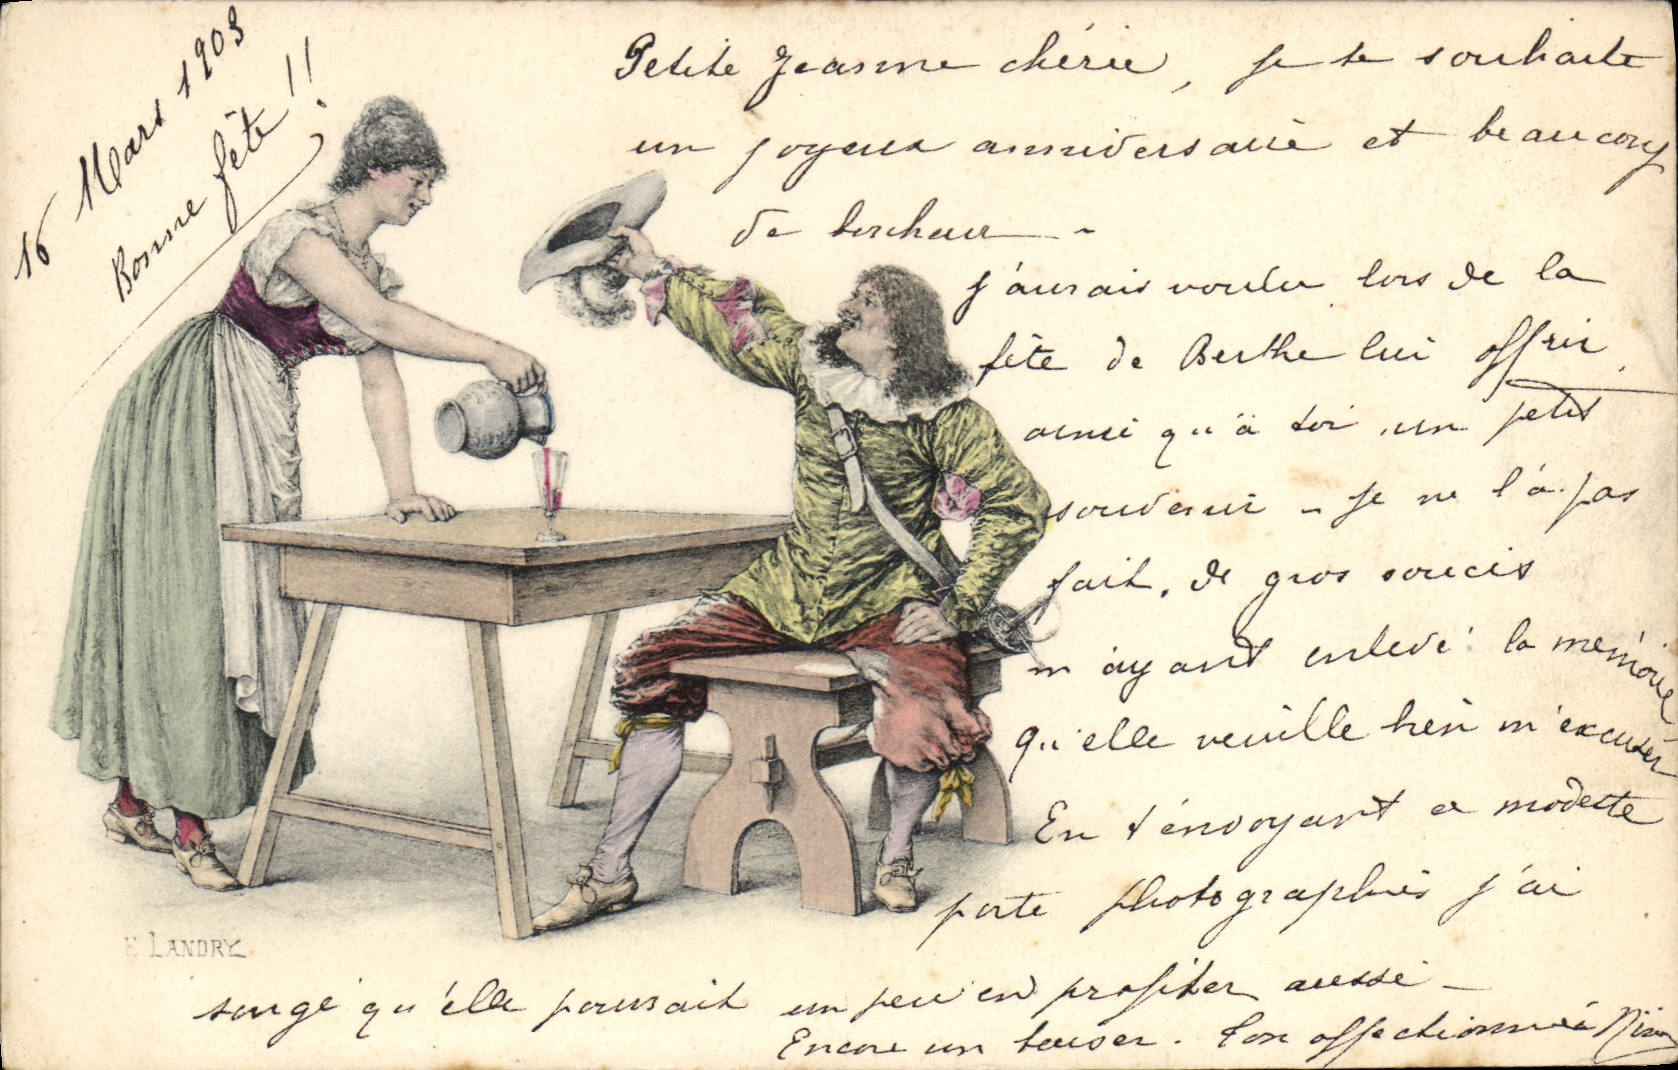 16 Mars 1903
Bonne fête !!
Petite Jeanne chérie, je te souhaite
un joyeux anniversaire et beaucoup
de bonheur -
j'aurais voulu lors de la
fête de Berthe lui offrir,
ainsi qu'à toi, un petit
souvenir - je ne l'ai pas
fait, de gros soucis
m'ayant enlevé la mémoire
Qu'elle veuille bien m'excuser
En t'envoyant ce modeste
porte photographies j'ai
songé qu'elle pourrait un peu en profiter aussi -
Encore un baiser. Ton affectionnée
H LANDRY